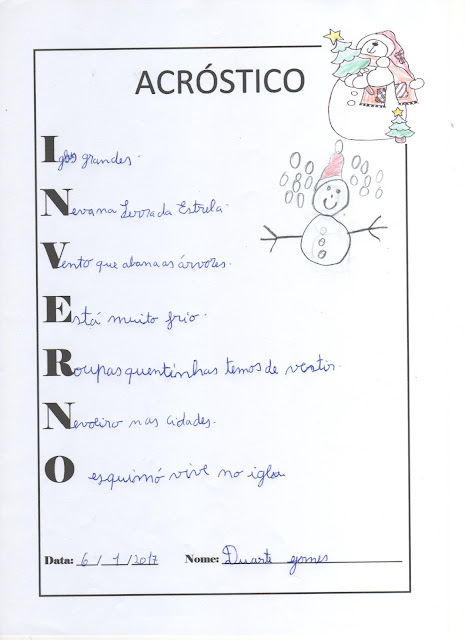 ACRÓSTICO
Iglos grandes.
Neva na Serra da Estrela.
Vento que abana as árvores.
Está muito frio.
Roupas quentinhas temos de vestir.
Nevoeiro nas cidades.
O esquimó vive no igloo
Data: 6/1/2017 Nome: Duarte gomes